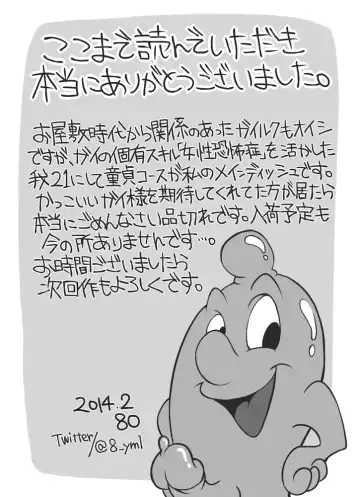 ここまで読んでいただき
本当にありがとうございました。
お屋敷時代から関係のあったガイルクもオイシイ
ですが、ガイの個有スキル「女性恐怖症」を活かした
21にして童貞コースが私のメインディッシュです。
かっこいいガイ様を期待してくれてた方が居たら
本当にごめんなさい品切れです。入荷予定も
今の所ありませんです…。
お時間ございましたら
次回作もよろしくです。
2014.2
80
Twitter/@8_yml